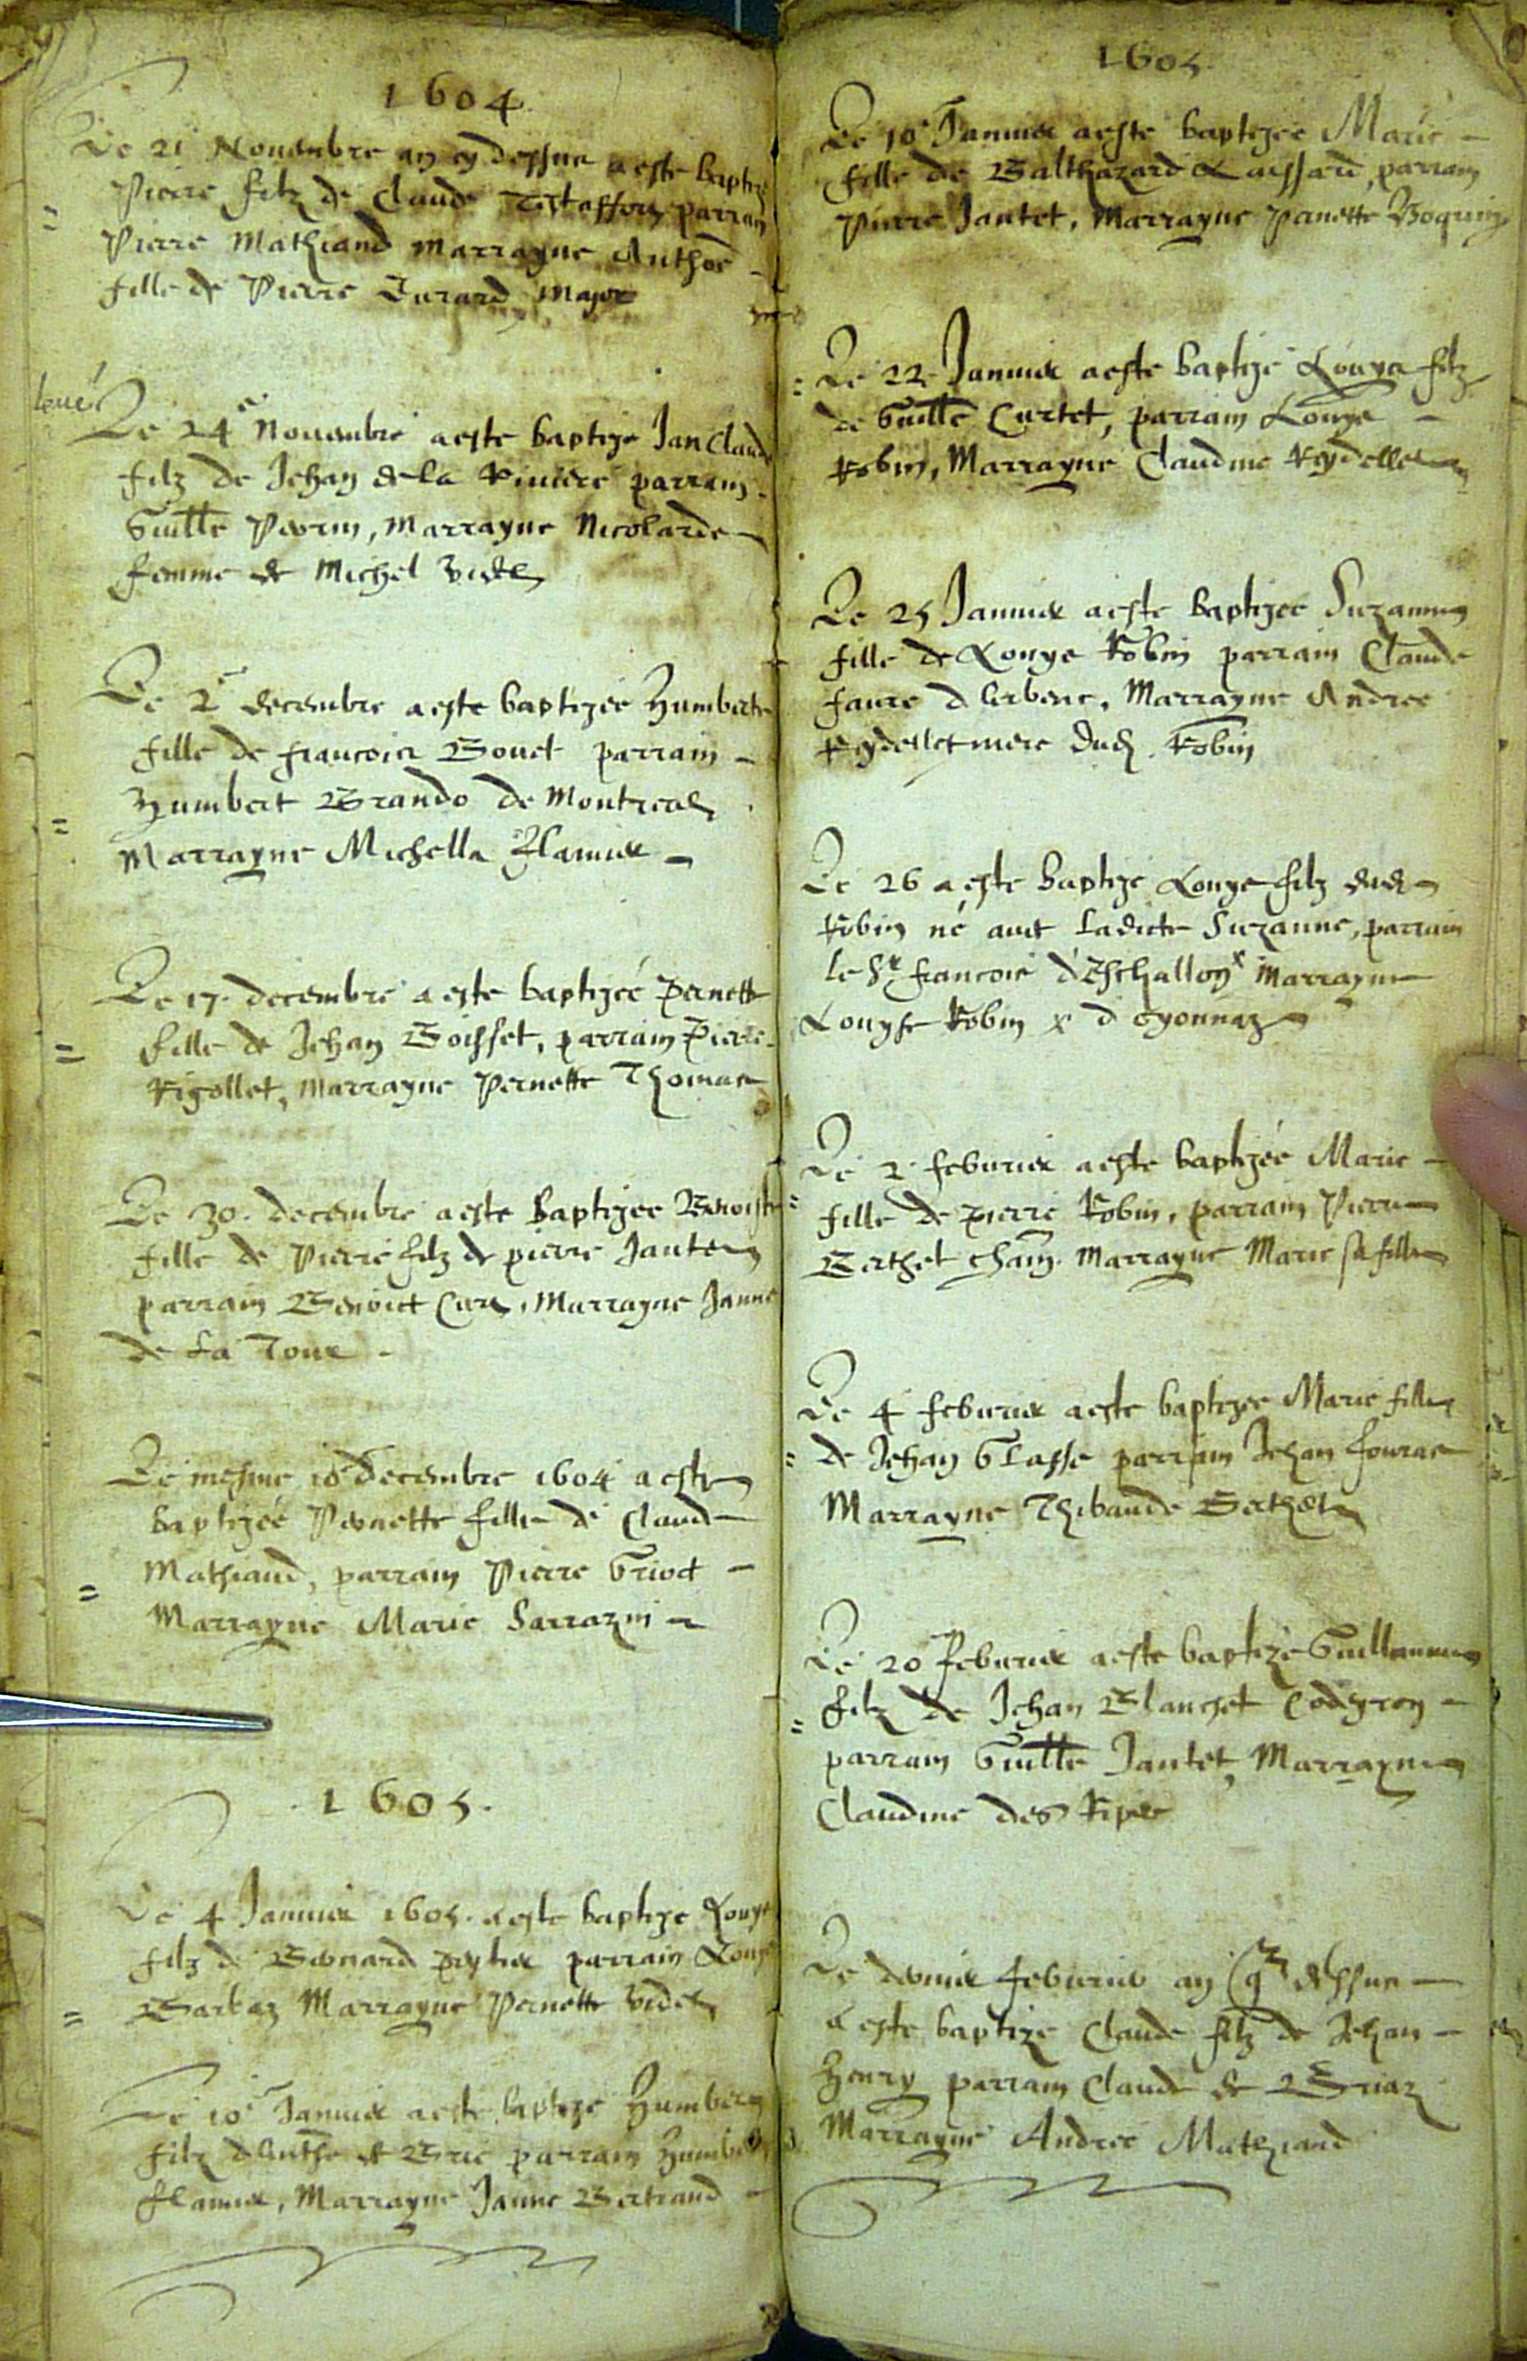 1604.
Le 21 Novembre an cy dessus a este baptizé
Pierre filz de Claude parrain
Pierre Mathiand marrayne Anthoe
fille de Pierre Durard major
Le 24e Novembre a este baptize Jan Claude
filz de Jehan de la Riviere parrain
Guille Perrin, Marrayne Nicolarde
femme de Michel Videl
Le 2e decembre a este baptizée Humberte
fille de francois Bouet parrain
Humbert Brando de Montreal
Marrayne Michella
Le 17. decembre a este baptizée Pernette
fille de Jehan Boisset, parrain Pierre
Rigollet, Marrayne Pernette Thomas
Le 30. decembre a este baptizee Benoiste
fille de Pierre filz de pierre Jantet
parrain Benoict Marrayne Janne
de La Tour
Le mesme decembre 1604 a este
baptizée Pernette fille de Claude
Mathiand, parrain Pierre Griot
Marrayne Marie Sarrazin
1605.
Le 4 Janvier 1605. a este baptize Louys
filz de Bernard parrain Louys
Barbaz Marrayne Pernette Videl
Le 10e Janvier a este baptize Humbert
filz d'Anthe de Brie parrain Humbert
flamier, Marrayne Janne Bertrand
1605.
Le 10e Janvier a este baptizée Marie
fille de Balthazard parrain
Pierre Jantet, Marrayne Panette
Le 22 Janvier a este baptizé Louys filz
de Guille Curtet, parrain Louys
Robin, Marrayne Claudine Reydellet
Le 25 Janvier a este baptizee Suzanne
fille de Louys Robin parrain Claude
faure d'Arbenc, Marrayne Andree
Reydellet mere dud. Robin
Le 26 a este baptizé Louys filz dud.
Robin né avec ladicte Suzanne, parrain
le Sr francois d'Eschallon x Marrayne
Louyse Robin x d'oyonnaz
Le 2 febvrier a este baptizée Marie
fille de pierre Robin, parrain Pierre
Berthet Marrayne Marie sa fille
Le 4 febvrier a este baptizee Marie fille
de Jehan Glasse parrain Jehan
Marrayne Thibaude Berthet
Le 20 febvrier a este baptizé Guillaume
filz de Jehan Blanchet
parrain Guille Jantet, Marrayne
Claudine des
Le dernier febvrier an dessus
a este baptize Claude filz de Jehan
Henry parrain Claude de Briaz
Marrayne Andree Mathiand